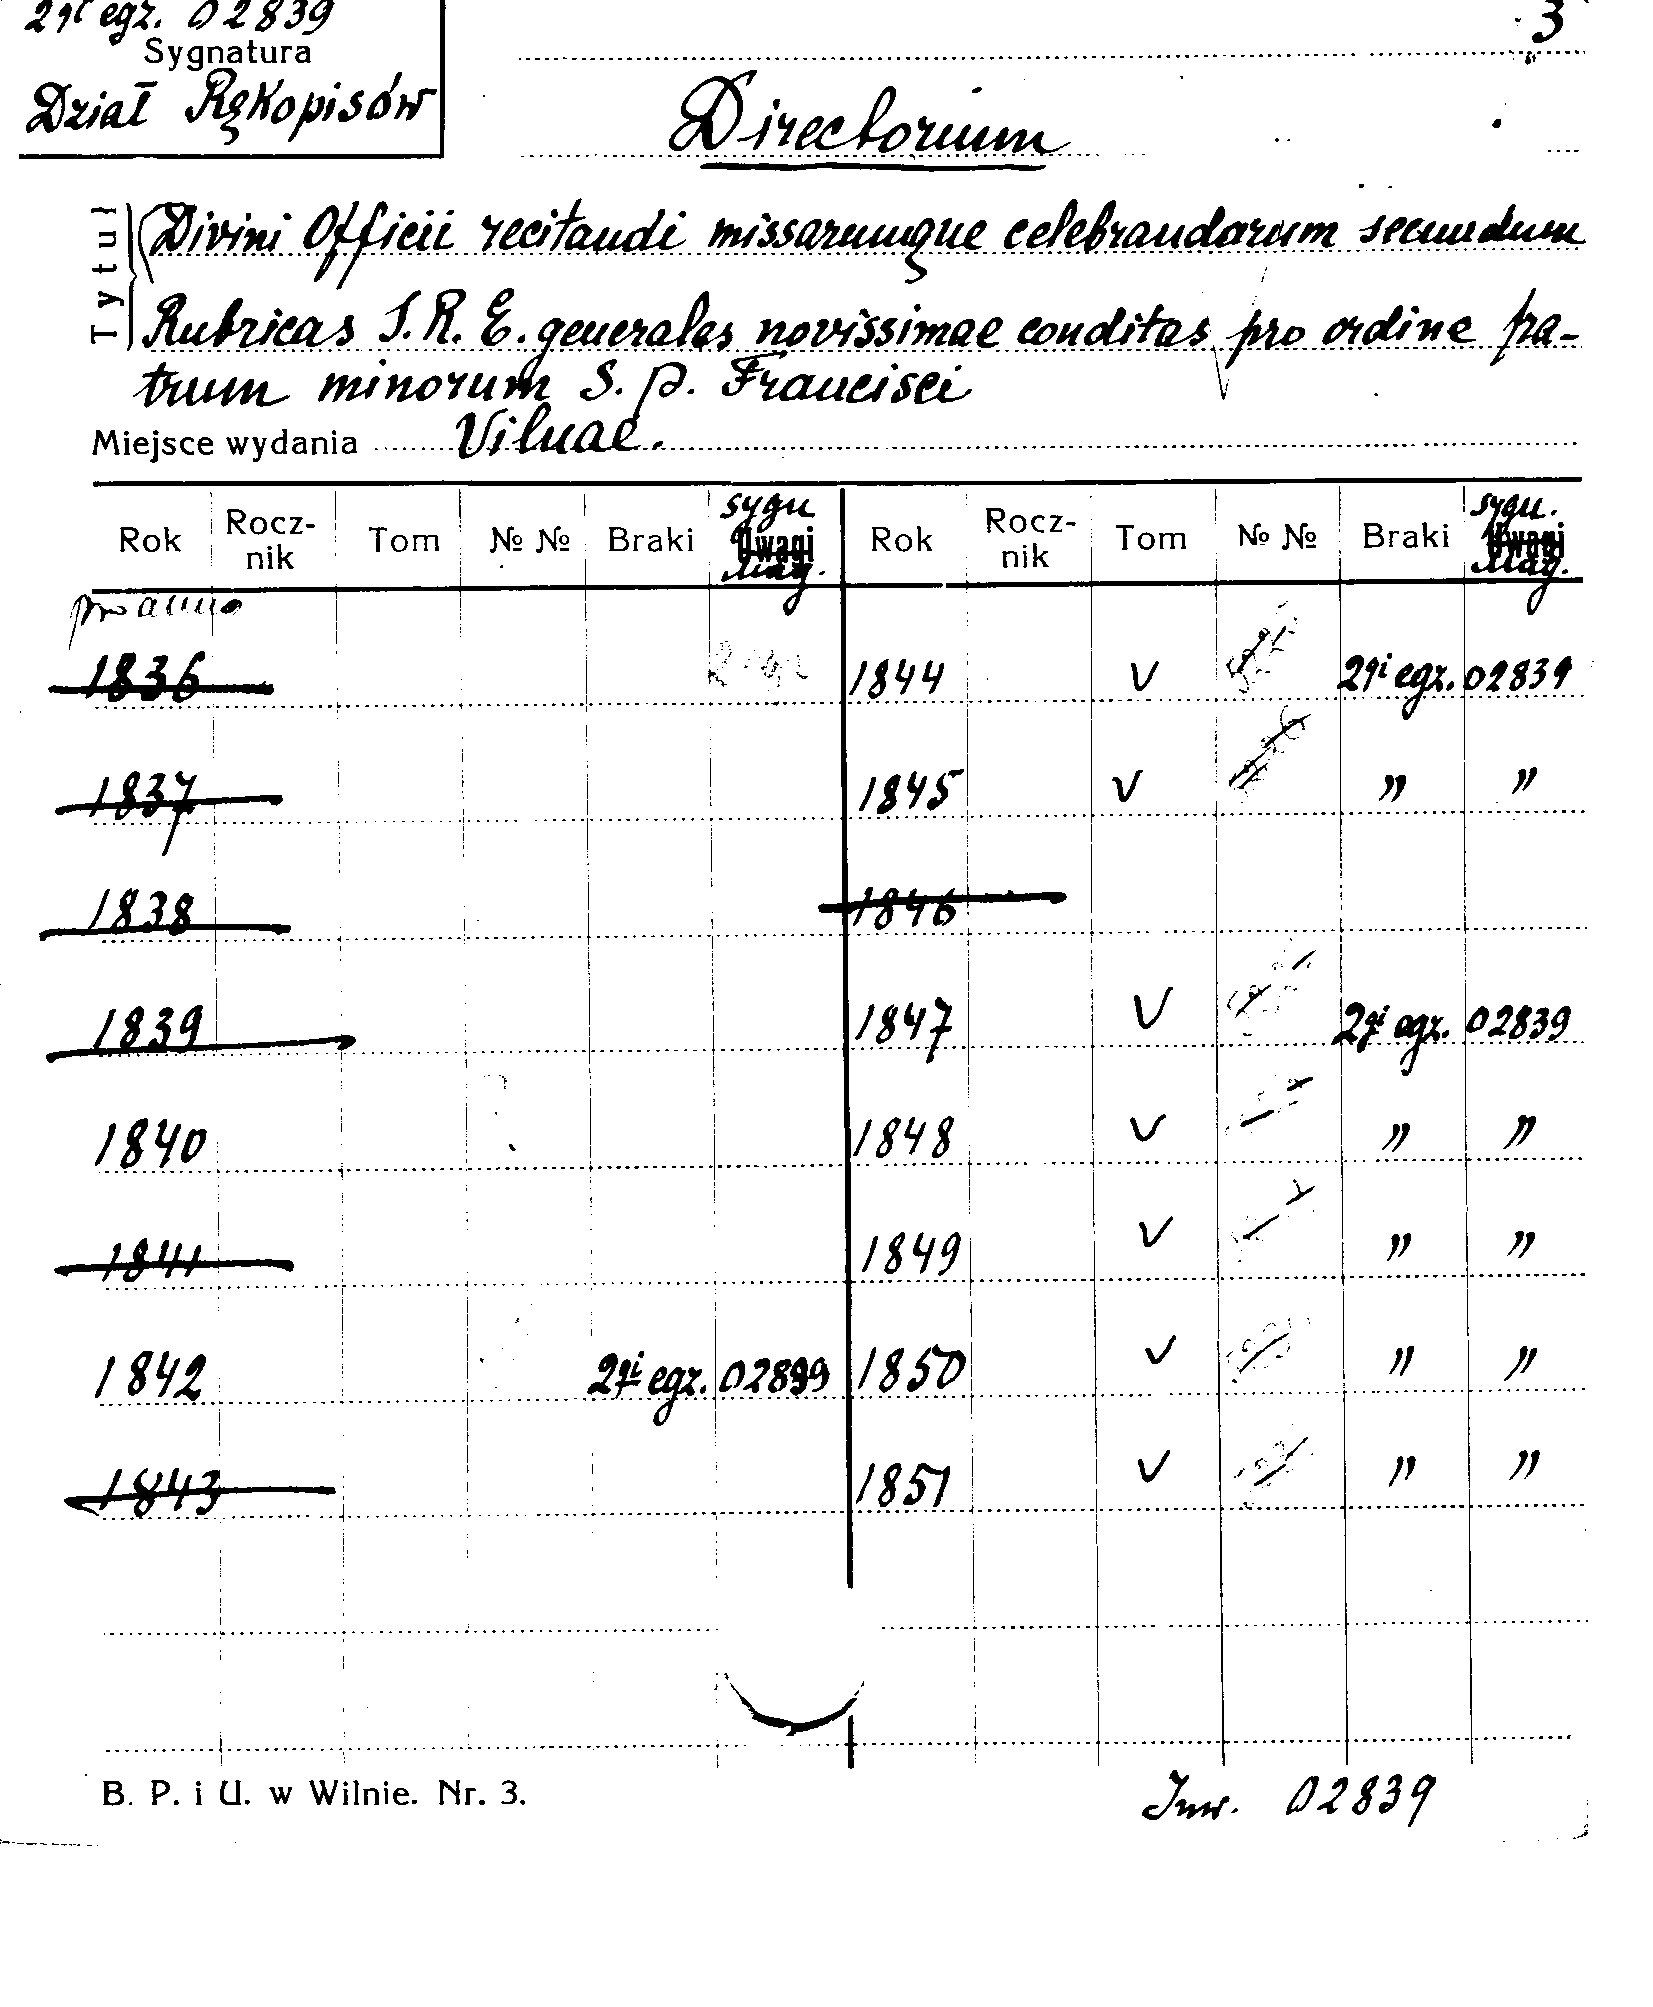 2gi egz. 02839
3
Sygnatura
Dział Rękopisów
Directorium
Tytuł
Divini Officii recitandi missarumque celebrandarum secundum
Rubricas S. R. E. generales novissimae conditas pro ordine fra-
trum minorum S. P. Francisci
Miejsce wydania Vilnae.
Rok Rocz-nik Tom № № Braki sygn. Uwagi Mag. Rok Rocz-nik Tom № № Braki sygn. Uwagi Mag.
pro anno
1836 1844 V 2gi egz. 02839
1837 1845 V " "
1838 1846
1839 1847 V 2gi egz. 02839
1840 1848 V " "
1841 1849 V " "
1842 2gi egz. 02839 1850 V " "
1843 1851 V " "
B. P. i U. w Wilnie. Nr. 3.
Inw. 02839